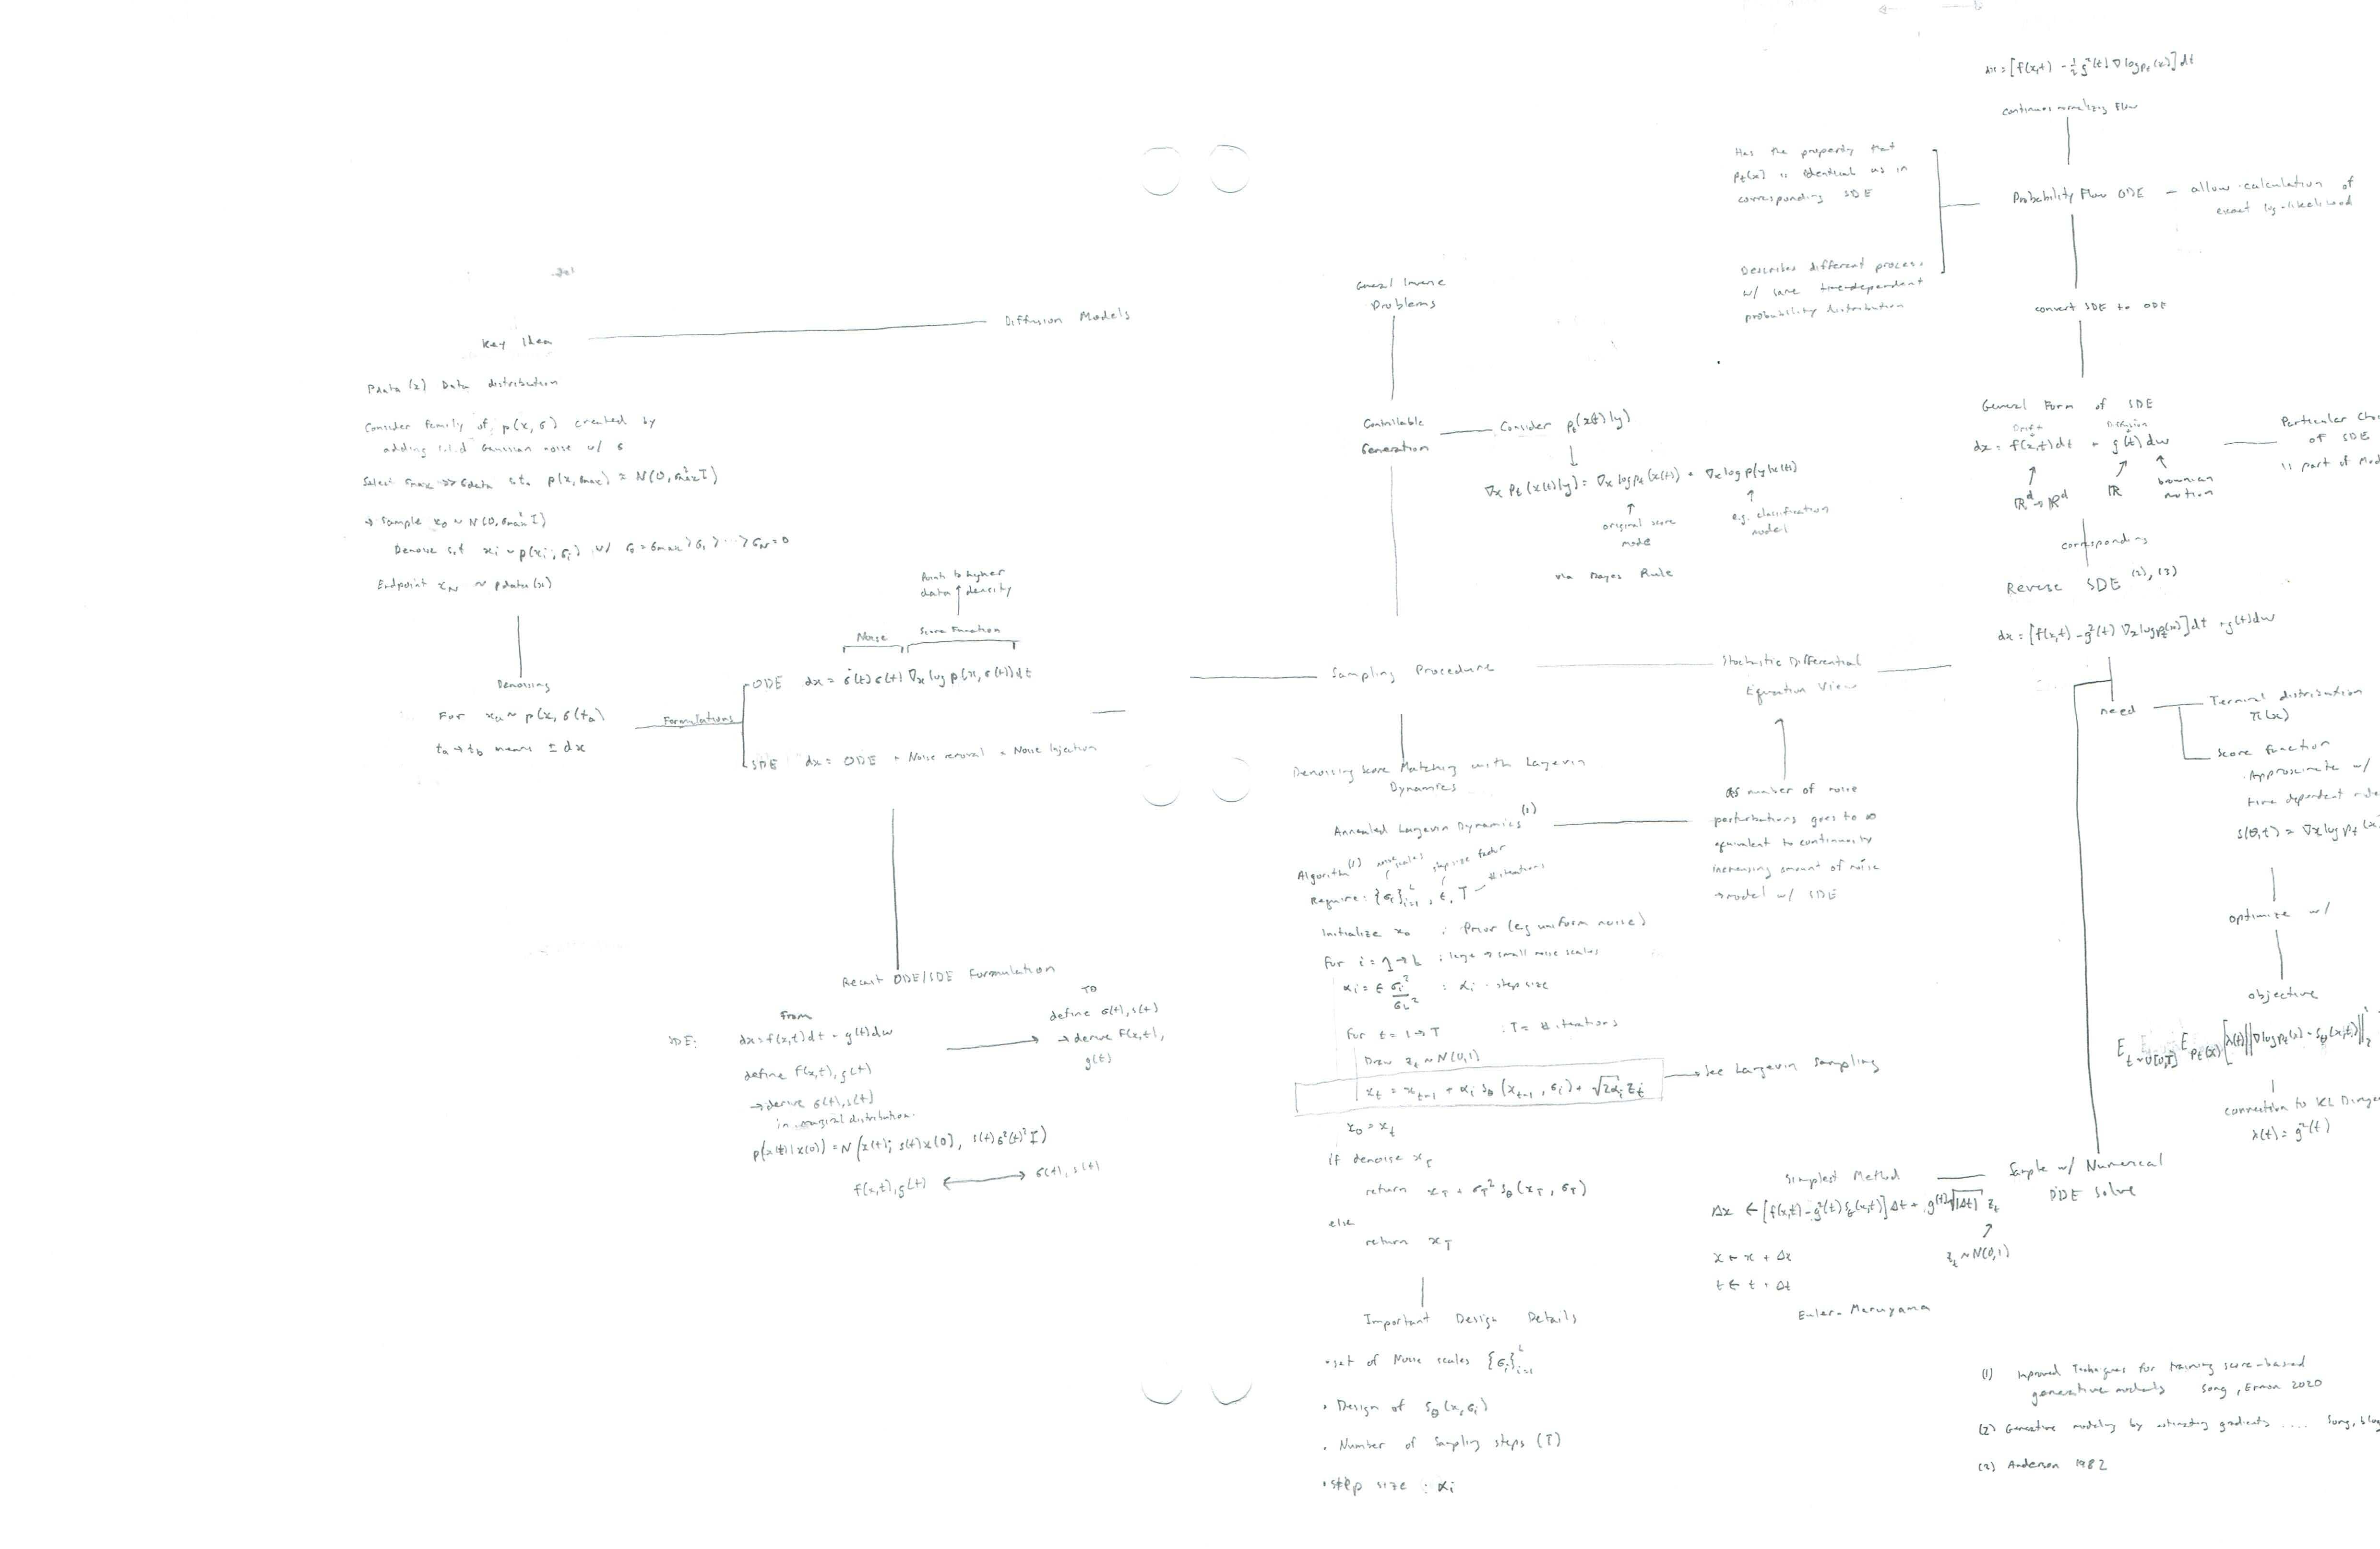 Diffusion Models
Key Idea
Pdata(x) Data distribution
Consider family of p(x,σ) created by
adding i.i.d Gaussian noise w/ σ
Select σmax >> σdata s.t. p(x,σmax) ≈ N(0,σ²max I)
→ Sample x₀ ~ N(0,σ²max I)
Denoise s.t xᵢ ~ p(xᵢ,σᵢ) w/ σ₀=σmax > σ₁ > ... > σN=0
Endpoint xN ~ pdata(x)
Denoising
For xa ~ p(x,σ(ta)
ta→tb means ± dx
Formulations
Points to higher
data density
Noise
Score Function
ODE dx = σ̇(t)σ(t)∇x log p(x,σ(t))dt
SDE dx = ODE + Noise removal + Noise Injection
Recast ODE/SDE Formulation
From
SDE: dx=f(x,t)dt + g(t)dw
define f(x,t),g(t)
→derive σ(t),s(t)
in marginal distribution.
p(x(t)|x(0)) = N(x(t); s(t)x(0), s(t)²σ(t)²I)
f(x,t),g(t) ↔ σ(t),s(t)
TO
define σ(t),s(t)
→ derive f(x,t),
g(t)
General Inverse
Problems
Controllable
Generation
Consider pt(x(t)|y)
∇x pt(x(t)|y) = ∇x log pt(x(t)) + ∇x log p(y|x(t))
original score
model
e.g. classification
model
via Bayes Rule
Sampling Procedure
Denoising Score Matching with Langevin
Dynamics
Annealed Langevin Dynamics (1)
Algorithm (1)
noise scales
step size factor
# iterations
Require: {σi}ᴸi=1, ε, T
Initialize x₀ : Prior (eg uniform noise)
For i = 1→L : large → small noise scales
αi = ε σi²/σL² : αi - step size
For t = 1→T : T = # iterations
Draw zt ~ N(0,1)
xt = xt-1 + αi sθ(xt-1, σi) + √2αi zt
See Langevin Sampling
x₀ = xt
if denoise xT
return xT + σT² sθ(xT, σT)
else
return xT
Important Design Details
• set of Noise scales {σi}ᴸi=1
• Design of sθ(x,σi)
• Number of Sampling steps (T)
• step size : αi
Stochastic Differential
Equation View
As number of noise
perturbations goes to ∞
equivalent to continuously
increasing amount of noise
→model w/ SDE
dx = [f(x,t) - ½g²(t)∇log pt(x)]dt
continuous normalizing flow
Has the property that
pt(x) is identical as in
corresponding SDE
Describes different process
w/ same time-dependent
probability distribution
Probability Flow ODE - allow calculation of
exact log-likelihood
convert SDE to ODE
General Form of SDE
Drift
Diffusion
dx = f(x,t)dt + g(t)dw
ℝᵈ→ℝᵈ
ℝ
brownian
motion
Particular
of SDE
is part of
corresponding
Reverse SDE (2),(3)
dx = [f(x,t) - g²(t)∇x log pt(x)]dt + g(t)dw
need
Terminal distribution
π(x)
Score Function
Approximate w/
time dependent
s(θ,t) ≈ ∇x log pt(x
optimize w/
objective
E t~U[0,T] E pt(x) [λ(t)||∇log pt(x) - sθ(x,t)||²₂
connection to KL
λ(t) = g²(t)
Simplest Method
Sample w/ Numerical
SDE Solve
Δx ← [f(x,t) - g²(t)sθ(x,t)]Δt + g(t)√|Δt| zt
zt ~ N(0,1)
x ← x + Δx
t ← t + Δt
Euler-Maruyama
(1) Improved Techniques for training score-based
generative models Song, Ermon 2020
(2) Generative modeling by estimating gradients .... Song, blog
(3) Anderson 1982